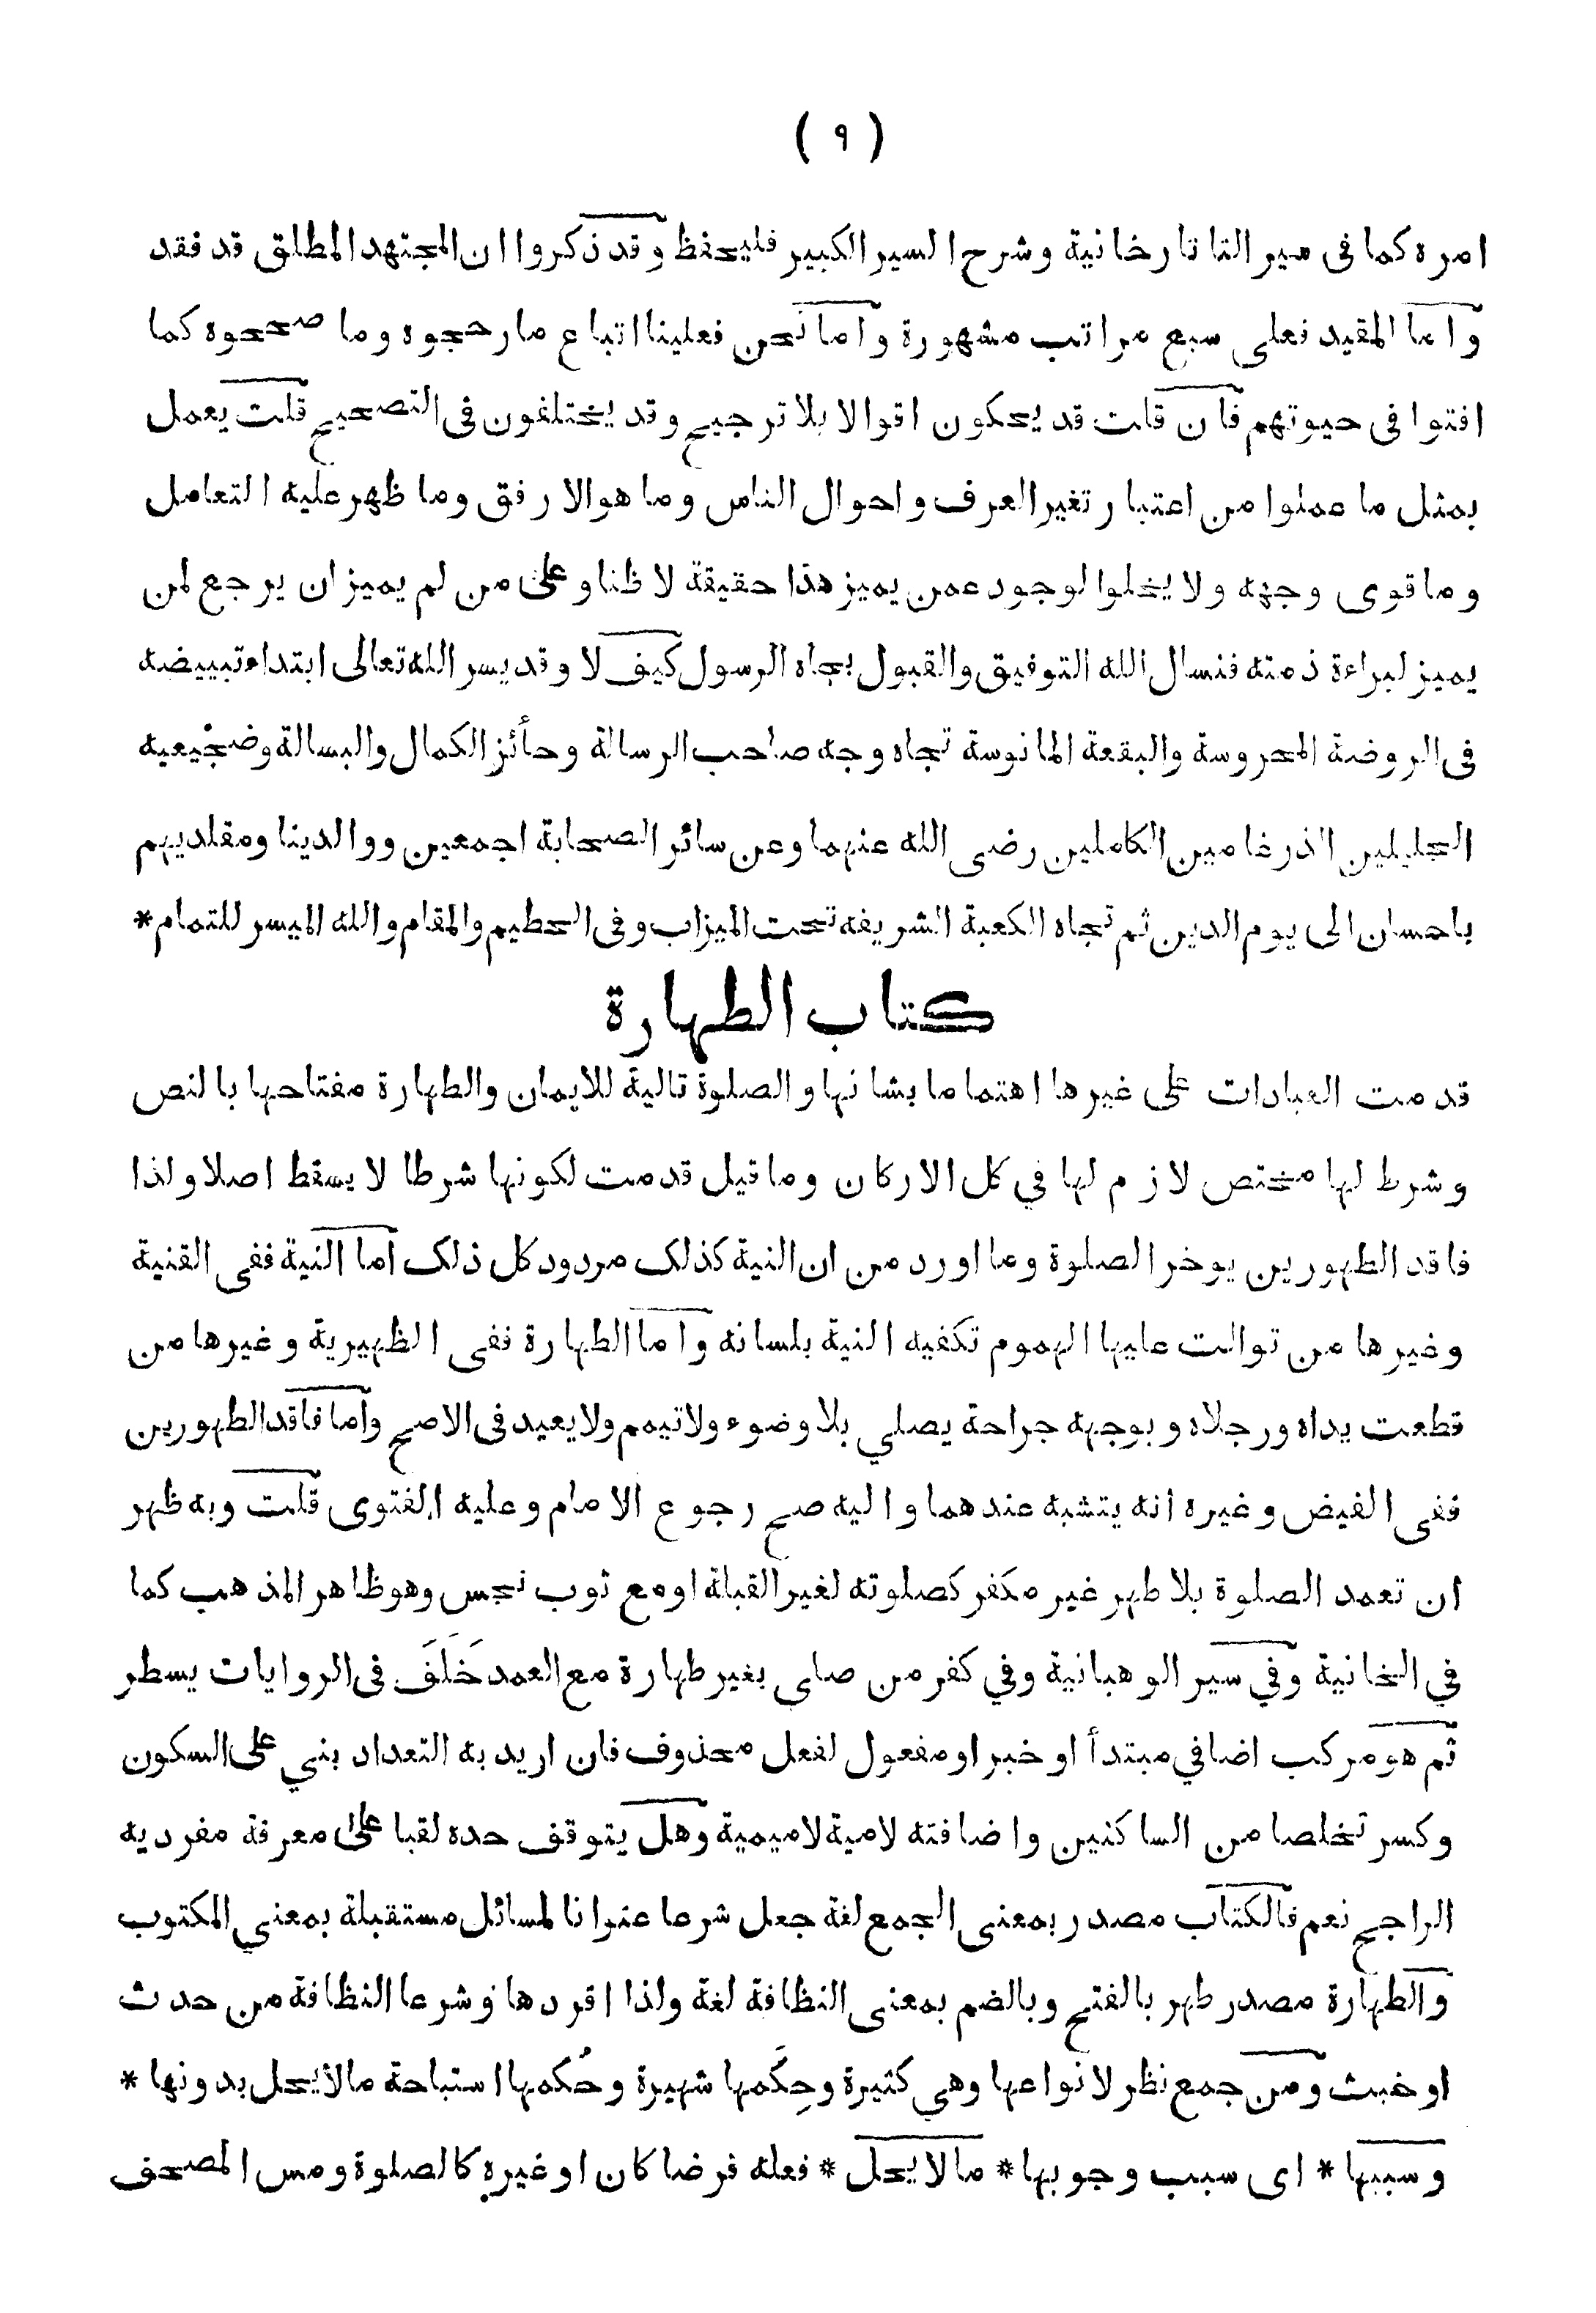 ( ٩ )
امره كما فى سير التاتارخانية وشرح السير الكبير فليحفظ وقد ذكروا ان المجتهد المطلق قد فقد
واما المقيد فعلى سبع مراتب مشهورة واما نحن فعلينا اتباع مارحجوه وما صححوه كما
افتوا فى حيوتهم فان قلت قد يحكون اقوالا بلا ترجيح وقد يختلفون فى التصحيح قلت يعمل
بمثل ما عملوا من اعتبار تغير العرف واحوال الناس وما هوالا رفق وما ظهر عليه التعامل
وماقوى وجهه ولا يخلوا لوجود عمن يميز هذا حقيقة لا ظنا وعلى من لم يميزان يرجع لمن
يميز لبراءة ذمته فنسال الله التوفيق والقبول بجاه الرسول كيف لا وقد يسر الله تعالى ابتداء تبييضه
فى الروضة المحروسة والبقعة المانوسة تجاه وجه صاحب الرسالة وحائز الكمال والبسالة وضجيعيه
الجليلين الذرغامين الكاملين رضى الله عنهما وعن سائر الصحابة اجمعين ووالدينا ومقلديهم
باحسان الى يوم الدين ثم تجاه الكعبة الشريفه تحت الميزاب وفى الحطيم والمقام والله الميسر للتمام *
كتاب الطهارة
قدمت العبادات على غيرها اهتماما بشانها والصلوة تالية للايمان والطهارة مفتاحها بالنص
وشرط لها مختص لازم لها في كل الاركان وماقيل قدمت لكونها شرطا لا يسقط اصلا ولذا
فاقد الطهورين يوخر الصلوة وما اورد من ان النية كذلك مردود كل ذلك اما النية ففى القنية
وغيرها من توالت عليها الهموم تكفيه النية بلسانه واما الطهارة ففى الظهيرية وغيرها من
قطعت يداه ورجلاه وبوجهه جراحة يصلي بلا وضوء ولاتيمم ولايعيد فى الاصح واما فاقد الطهورين
ففى الفيض وغيره انه يتشبه عندهما واليه صح رجوع الامام وعليه الفتوى قلت وبه ظهر
ان تعمد الصلوة بلا طهر غير مكفر كصلوته لغير القبلة اومع ثوب نجس وهوظاهر المذهب كما
في الخانية وفي سير الوهبانية وفي كفر من صلى بغير طهارة مع العمد خَلَفَ فى الروايات يسطر
ثم هومركب اضافي مبتدأ او خبر اومفعول لفعل محذوف فان اريد به التعداد بني على السكون
وكسر تخلصا من الساكنين واضافته لامية لاميمية وهل يتوقف حده لقبا على معرفة مفرديه
الراجح نعم فالكتاب مصدر بمعنى الجمع لغة جعل شرعا عنوانا لمسائل مستقبلة بمعنى المكتوب
والطهارة مصدر طهر بالفتح وبالضم بمعنى النظافة لغة ولذا افردها وشرعا النظافة من حدث
اوخبث ومن جمع نظر لانواعها وهي كثيرة وحِكَمها شهيرة وحُكمها استباحة مالايحل بدونها *
وسببها * اى سبب وجوبها * مالا يحل * فعله فرضا كان اوغيره كالصلوة ومس المصحف